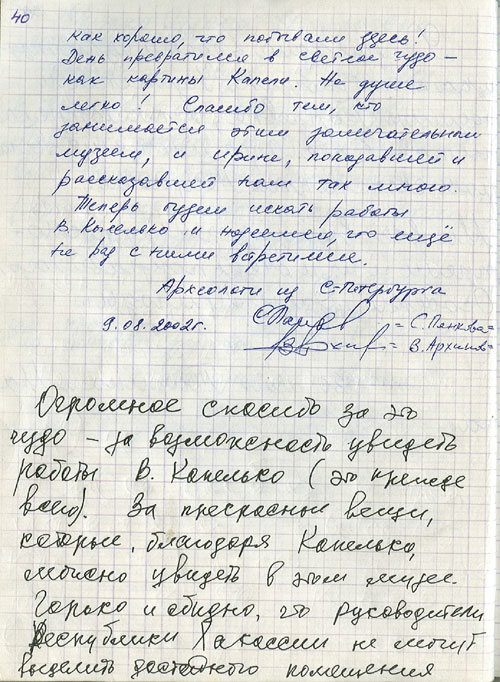 40
Как хорошо, что побывали здесь!
День превратился в светлое чудо –
как картины Капели. На душе
легко! Спасибо тем, кто
занимается этим замечательным
музеем, и Ирине, показавшей и
рассказавшей нам так много.
Теперь будем искать работы
В. Капелько и надеемся, что ещё
не раз с ними встретимся.
Археологи из С-Петербурга
9.08.2002г. = С. Панкова =
= В. Архипов =
Огромное спасибо за это
чудо – за возможность увидеть
работы В. Капелько (это прежде
всего). За прекрасные вещи,
которые, благодаря Капелько,
можно увидеть в этом музее.
Горько и обидно, что руководители
Республики Хакассии не могут
выделить достойного помещения